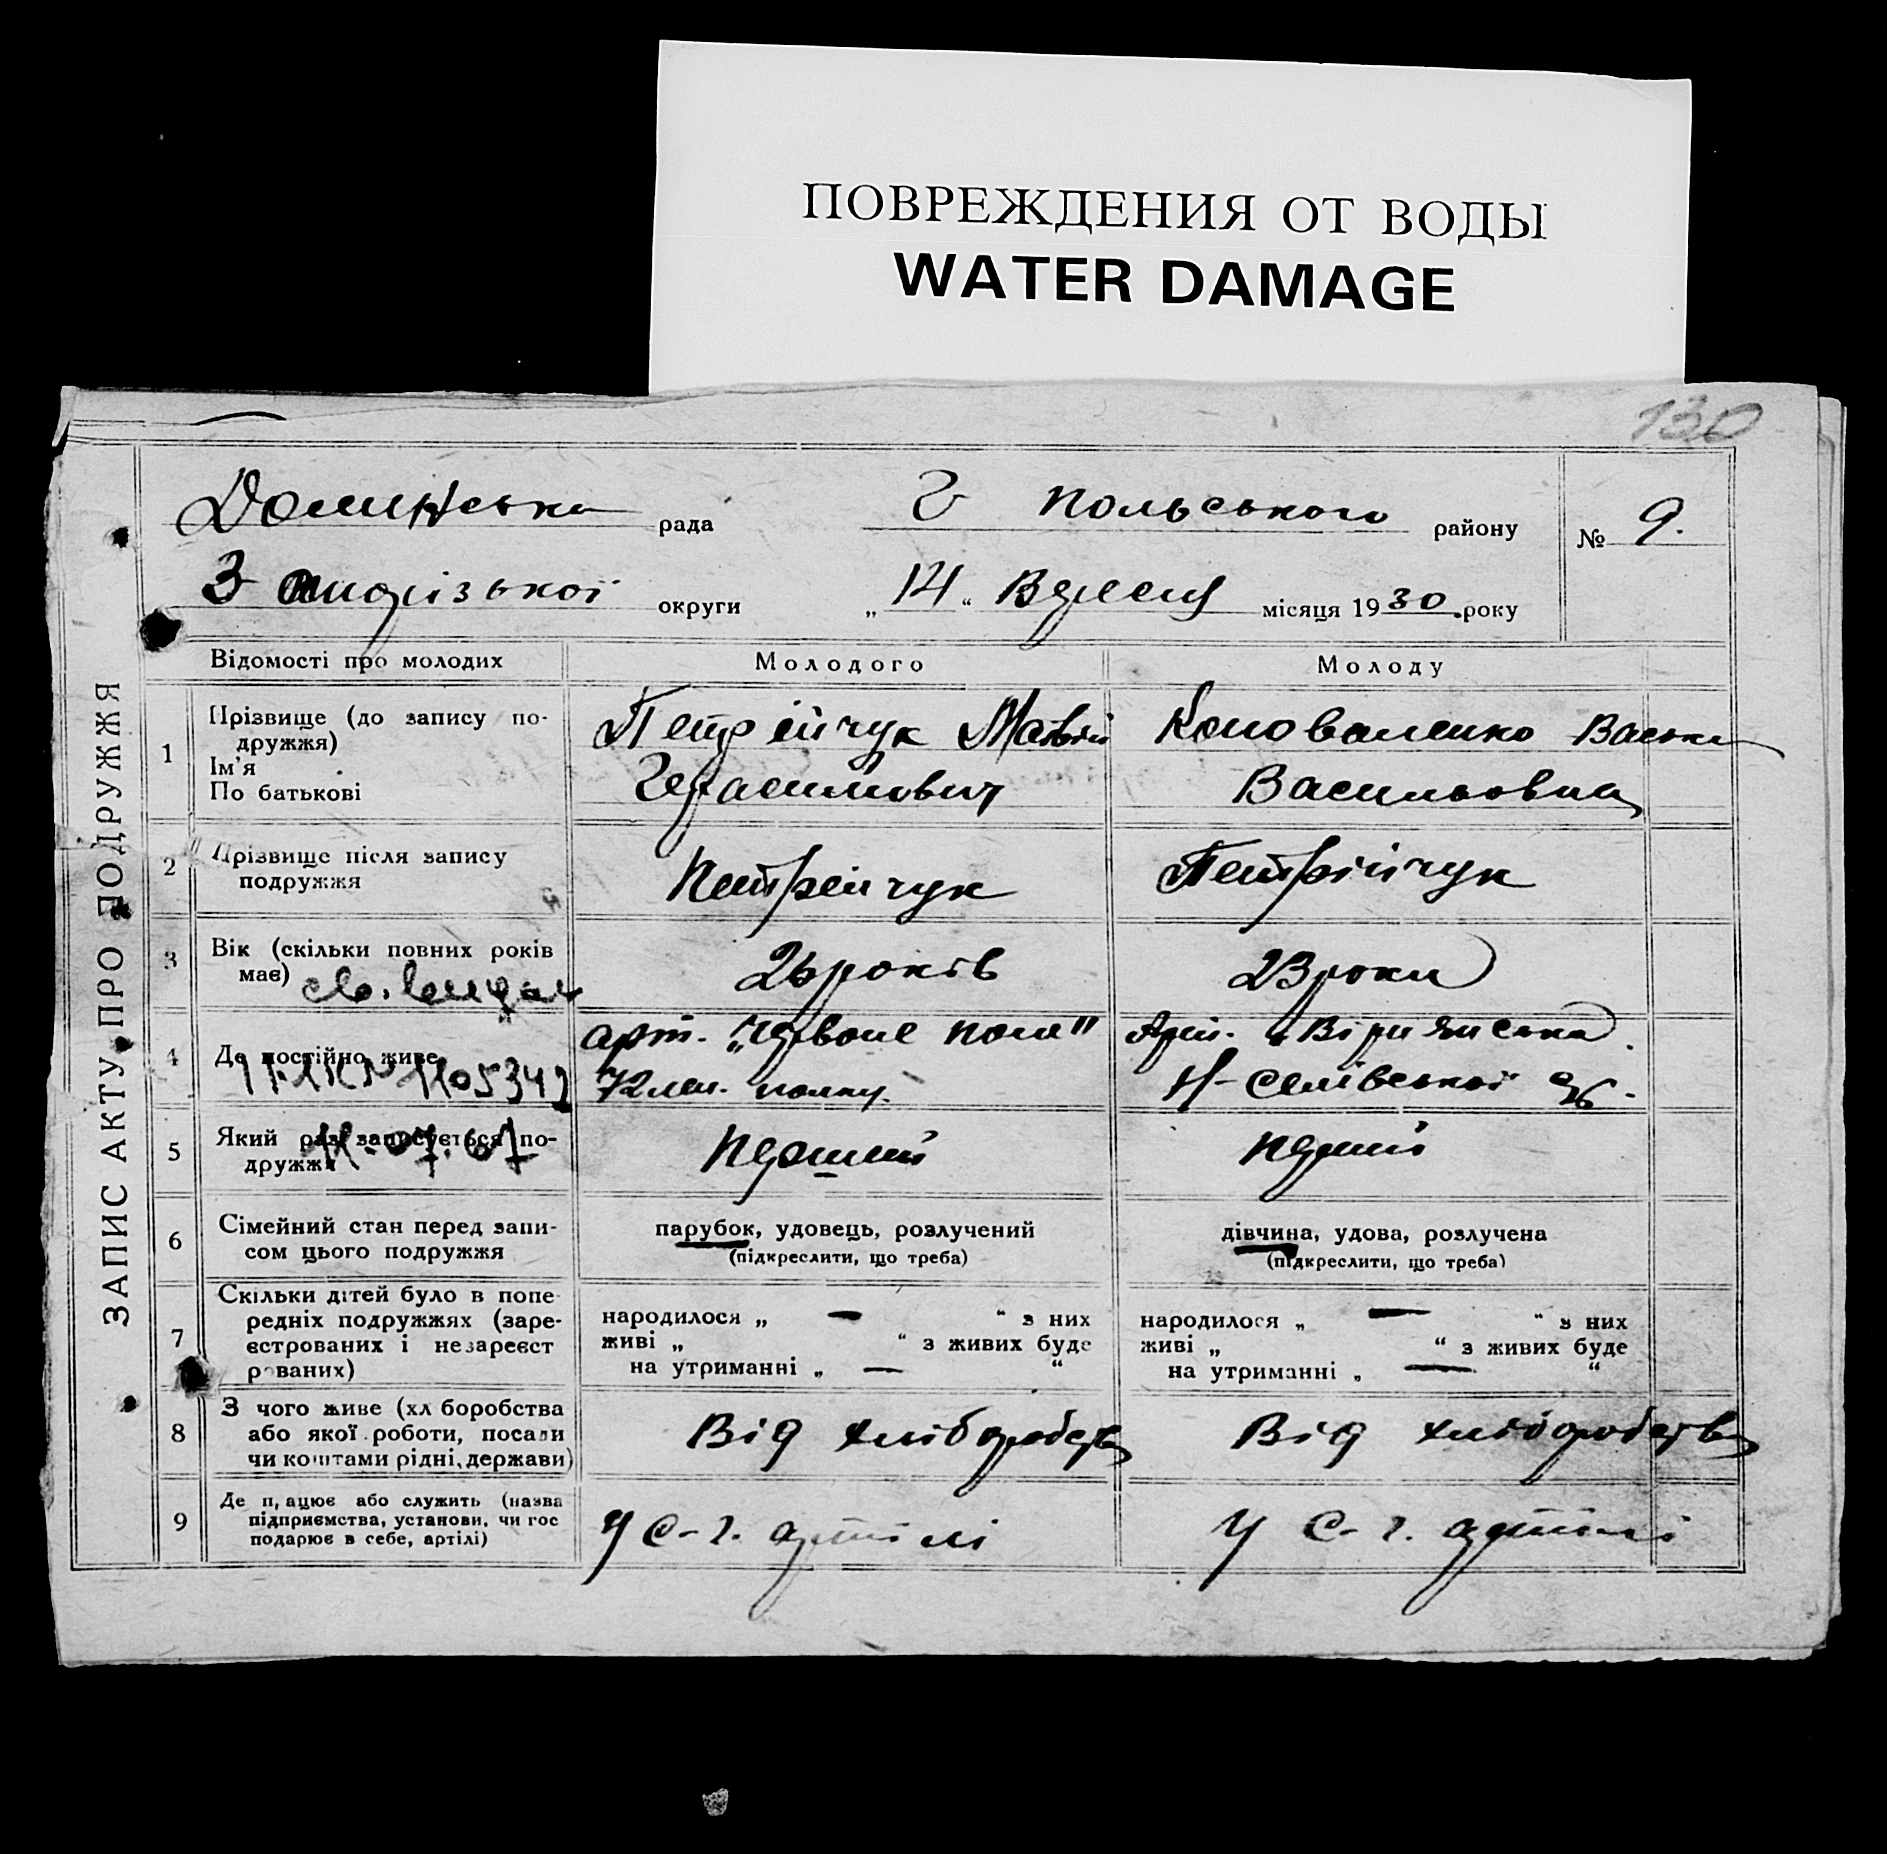 ПОВРЕЖДЕНИЯ ОТ ВОДЫ
WATER DAMAGE
130
ЗАПИС АКТУ ПРО ПОДРУЖЖЯ
рада Г польського району № 9.
округи „14“ місяця 1930 року
Відомості про молодих Молодого Молоду
1 Прізвище (до запису по-
дружжя)
Ім'я
По батькові
Петрейчук Матвій
Герасимович
Коноваленко Васка
Васильовна
2 Прізвище після запису
подружжя
Петрейчук
Петрійчук
3 Вік (скільки повних років
має)
26 років
23 роки
4 Де постійно живе
1105342
арт. „Червоне поле"
72 лен. полку.
Арт.
Н-
5 Який раз записується по-
дружжя
11.07.67
Перший
перший
6 Сімейний стан перед запи-
сом цього подружжя
парубок, удовець, розлучений
(підкреслити, що треба)
дівчина, удова, розлучена
(підкреслити, що треба)
7 Скільки дітей було в попе-
редніх подружжях (заре-
єстрованих і незареєст
рованих)
народилося „ — “ з них
живі „ “ з живих буде
на утриманні „ — “
народилося „ — “ з них
живі „ “ з живих буде
на утриманні „ — “
8 З чого живе (хл боробства
або якої роботи, посади
чи коштами рідні, держави)
Від хліборобства
Від хліборобства
9 Де працює або служить (назва
підприємства, установи, чи гос
подарює в себе, артілі)
У с-г. артілі
У с-г. артілі